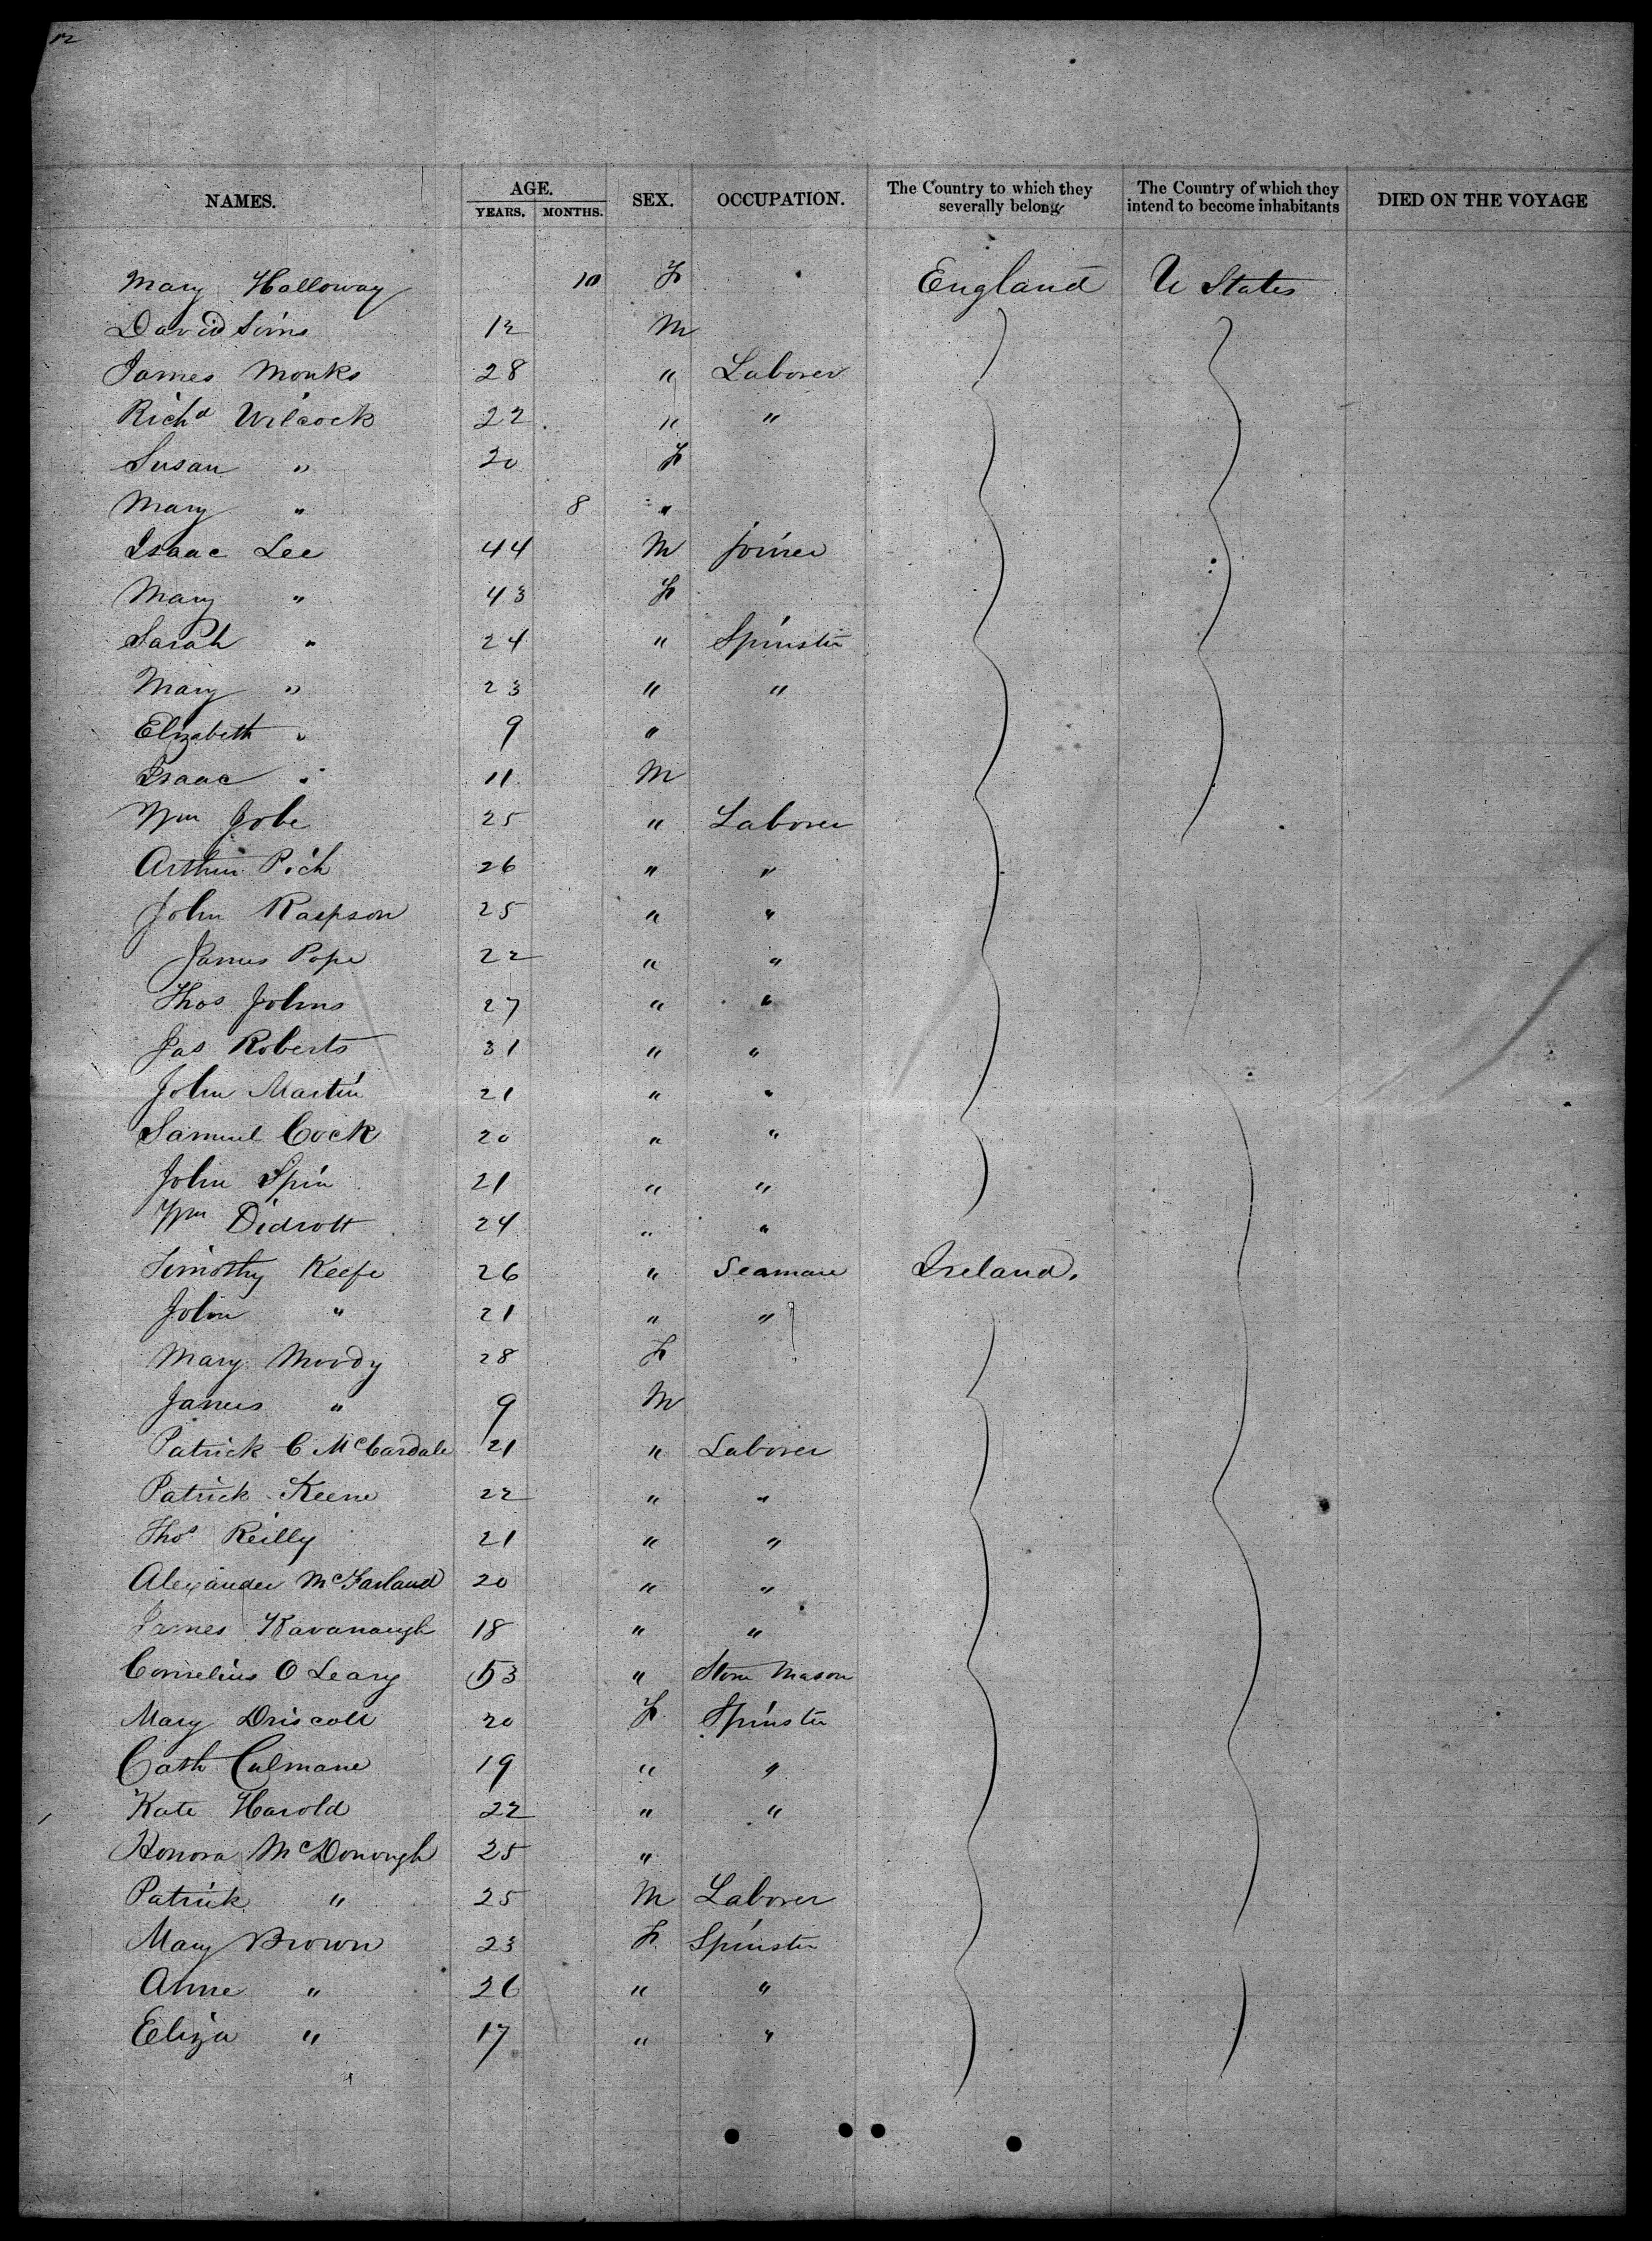 12
NAMES. AGE. SEX. OCCUPATION. The Country to which they severally belong The Country of which they intend to become inhabitants DIED ON THE VOYAGE
YEARS. MONTHS.
Mary Halloway 10 F England U States
David Sims 12 M
James Monks 28 " Laborer
Richd Wilcock 22 " "
Susan " 20 F
Mary " 8 "
Isaac Lee 44 M Joiner
Mary " 43 F
Sarah " 24 " Spinster
Mary " 23 " "
Elizabeth " 9 "
Isaac " 11 M
Wm Jobe 25 " Laborer
Arthur Pich 26 " "
John Raepson 25 " "
James Pope 22 " "
Thos Johns 27 " "
Jas Roberts 31 " "
John Martin 21 " "
Samuel Cock 20 " "
John Spin 21 " "
Wm Didrott 24 " "
Timothy Keefe 26 " Seaman Ireland.
John " 21 " "
Mary Moody 28 F
James " 9 M
Patrick C McCardale 21 " Laborer
Patrick Keene 22 " "
Thos Reilly 21 " "
Alexander McFarland 20 " "
James Kavanaugh 18 " "
Cornelius O Leary 53 " Stone Mason
Mary Driscoll 20 F Spinster
Cath Culmane 19 " "
Kate Harold 22 " "
Honora McDonough 25 "
Patrick " 25 M Laborer
Mary Brown 23 F Spinster
Anne " 26 " "
Eliza " 17 " "